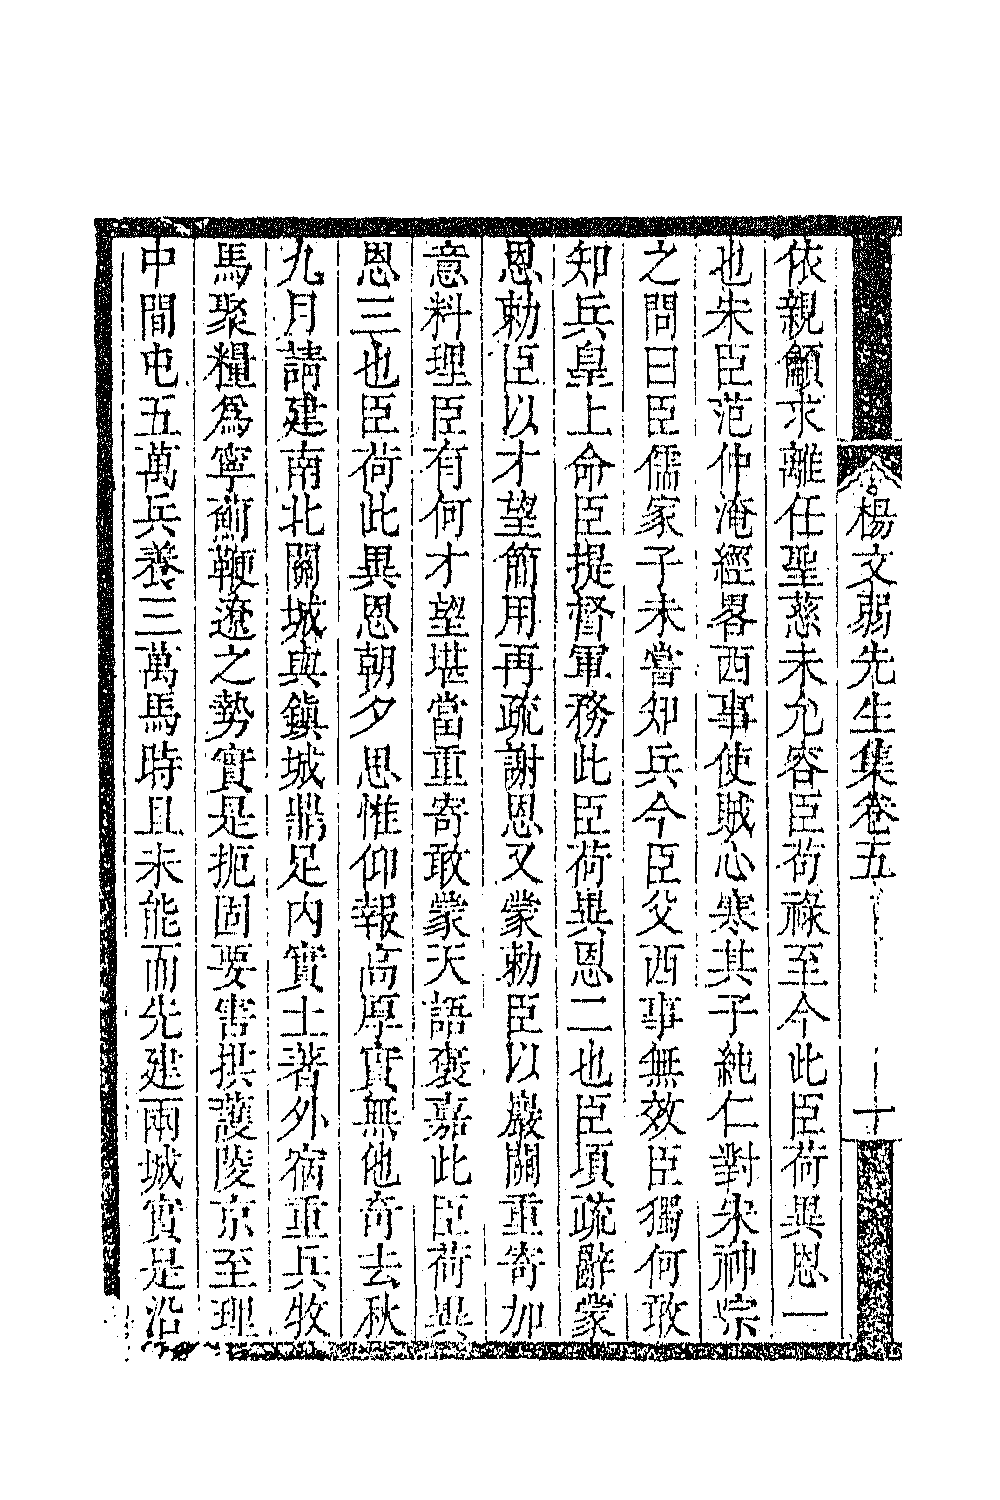 楊文弱先生集卷五
十
依親顧求離任聖慈未允容臣苟祿至今此臣荷異恩一
也宋臣范仲淹經畧西事使賊心寒其子純仁對宋神宗
之問曰臣儒家子未嘗知兵今臣父西事無效臣獨何敢
知兵皇上命臣提督軍務此臣荷異恩二也臣項疏辭蒙
恩勅臣以才望簡用再疏謝恩又蒙勅臣以巖關重寄加
意料理臣有何才望堪當重寄敢蒙天語褒嘉此臣荷異
恩三也臣荷此異恩朝夕思惟仰報高厚實無他奇去秋
九月請建南北關城與鎮城鼎足內實土著外宿重兵牧
馬聚糧為寧薊鞭遼之勢實是扼固要害拱護陵京至理
中間屯五萬兵養三萬馬時且未能而先建兩城實是沿